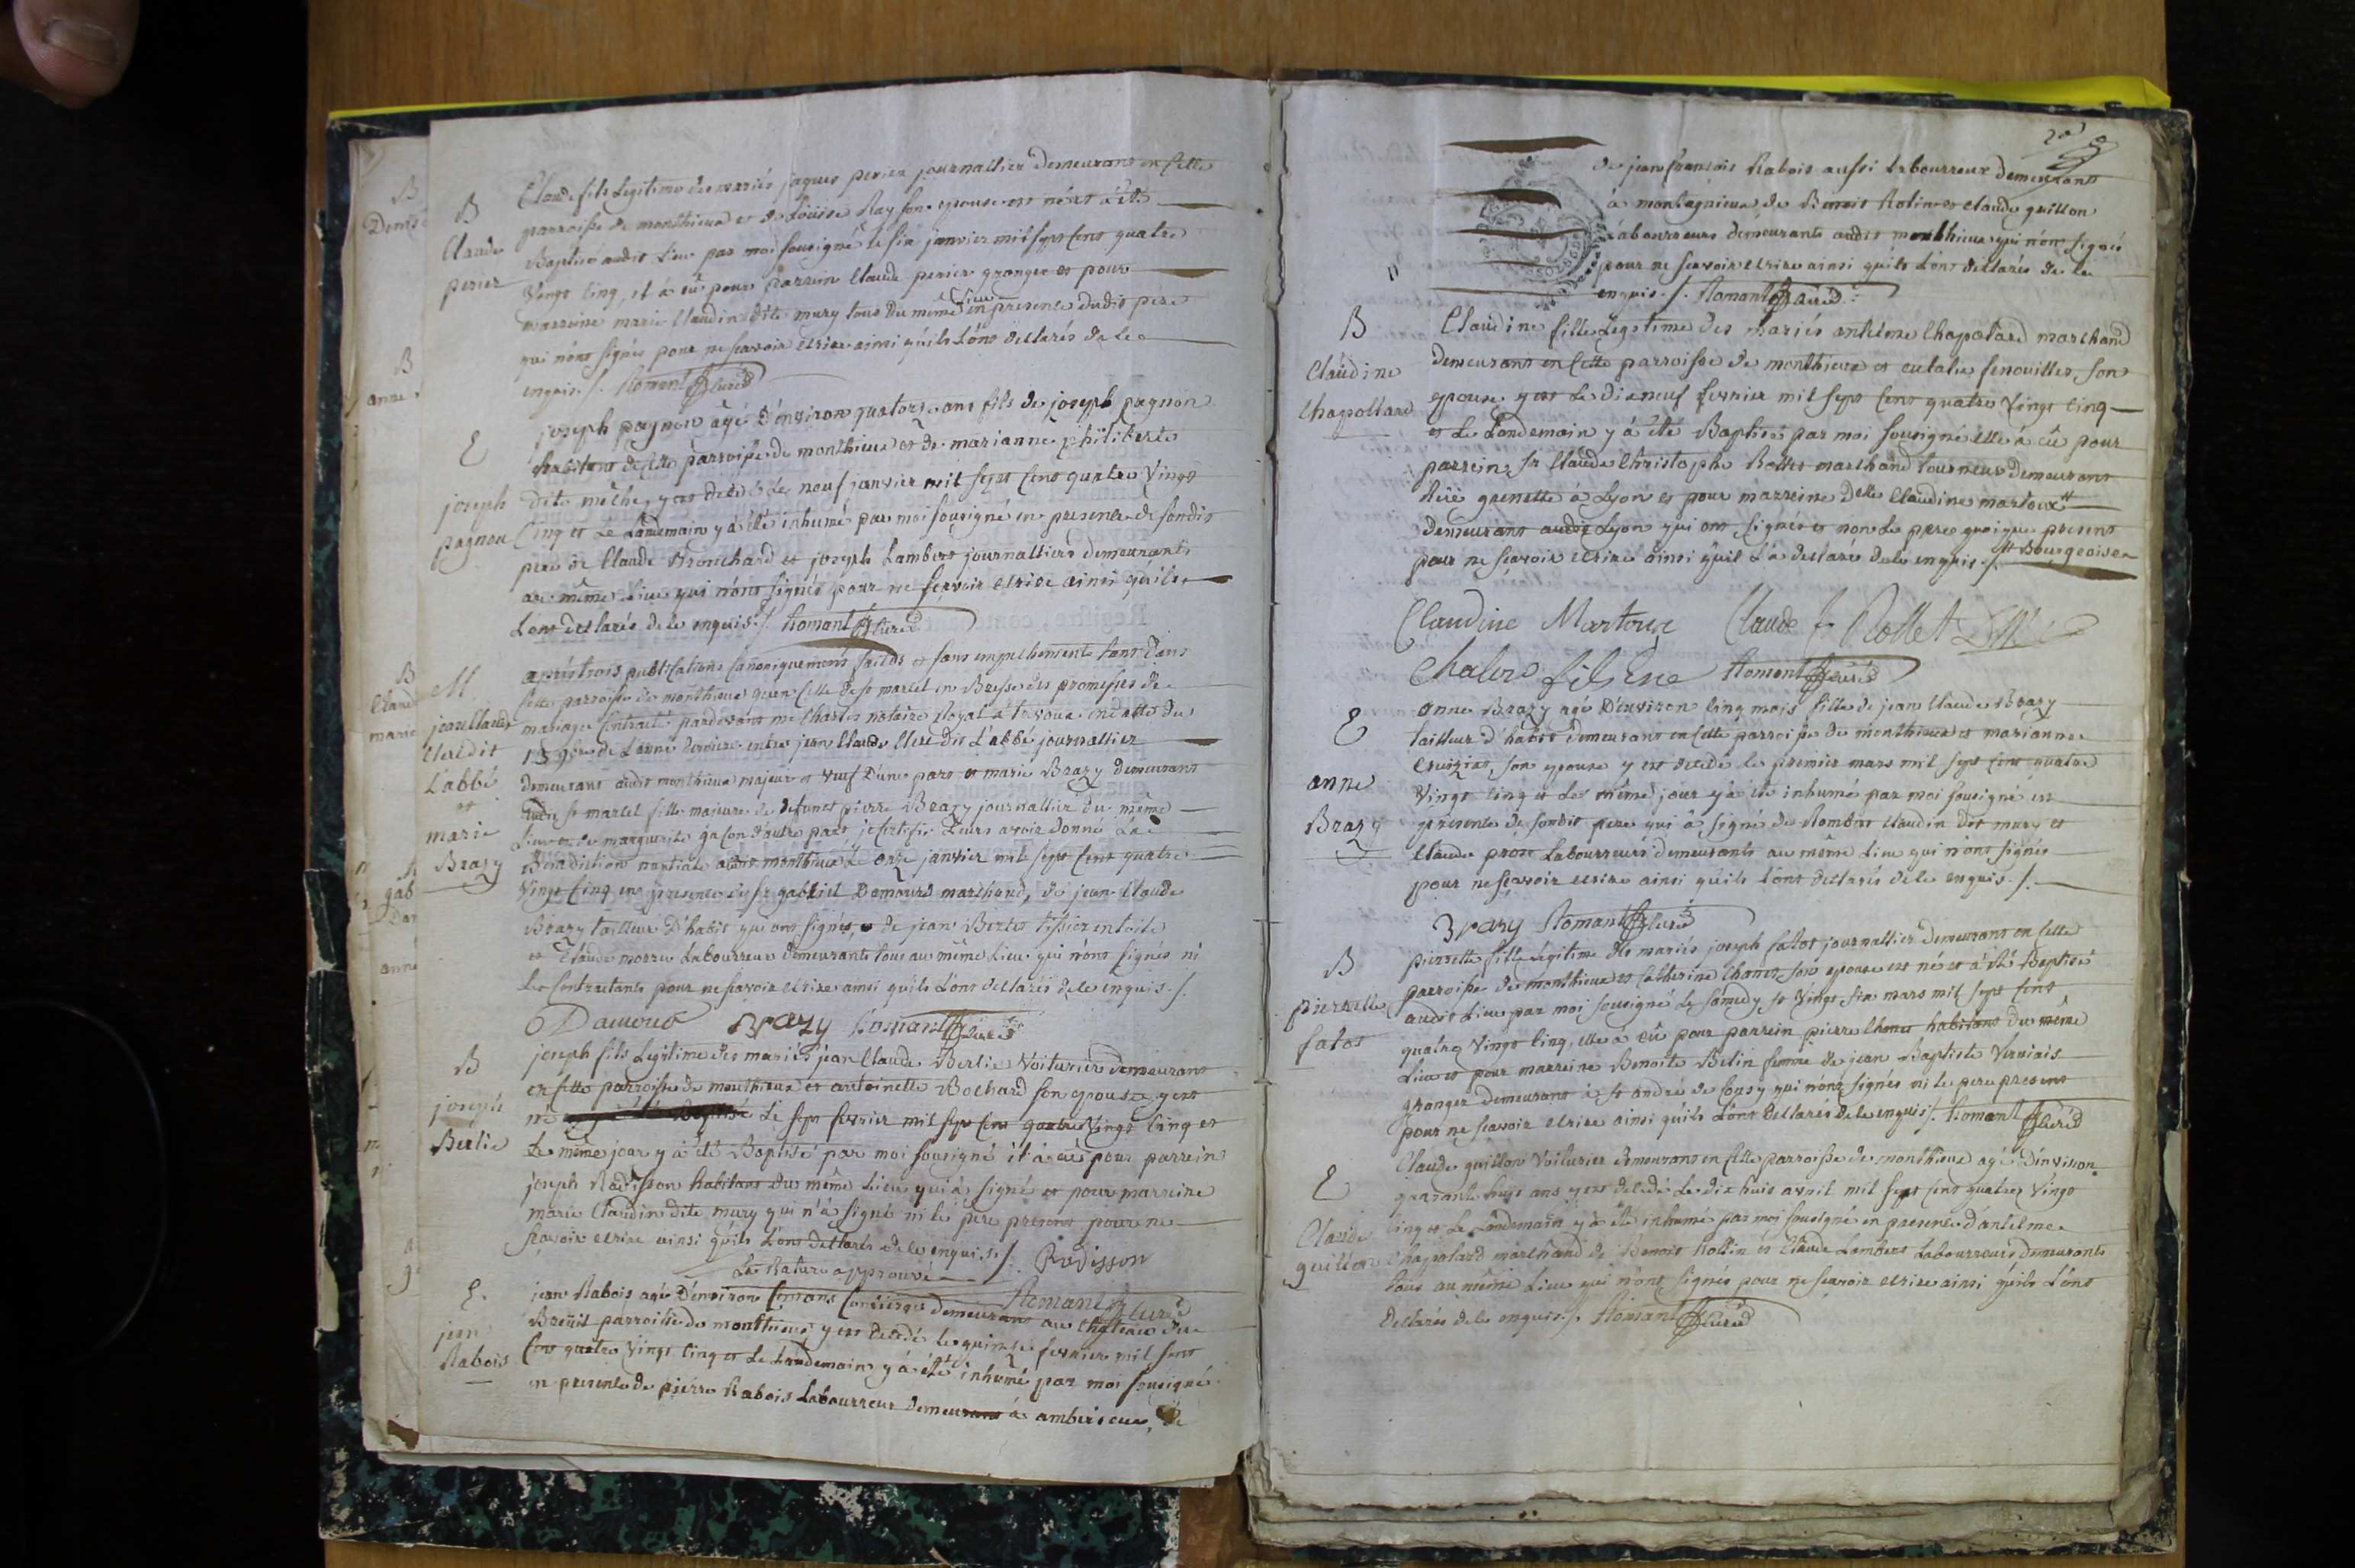 B
Claude
perier
Claude fils Legitime des mariés jaques perier journallier demeurant en cette
parroisse de monthieux et de Loüise Ray son epouse est né et à été
Baptisé audit Lieu par moi sousigné le six janvier mil sept cent quatre
Vingt cinq, il à eû pour parrein Claude perier granger et pour
marreine marie Claudin dite mury tous du même Lieu en presence dudit pere
qui n'ont signés pour ne scavoir ecrire ainsi qu'ils L'ont declarés de ce
enquis ./. Romant Curé
E
joseph
pagnon
joseph pagnon agé D'environ quatorze ans fils de joseph pagnon
habitant de cette parroisse de monthieux et de marianne philiberte
dite miche, y est decedé le neuf janvier mil sept cent quatre Vingt
Cinq et Le Landemain y à été inhumé par moi sousigné en presence de sondit
pere de Claude Bronchard et joseph Lambert journalliers demeurants
au même Lieu qui n'ont signés pour ne scavoir ecrire ainsi qu'ils
L'ont declarés de ce enquis ./. Romant Curé
M
jean Claude
Clerc dit
L'abbé
et
marie
Brazy
après trois publications canoniquement faites et sans empechements tant dans
cette parroisse de monthieux qu'en celle de st marcel en Bresse des promesses de
mariage Contracté pardevant me Charles notaire Royal à trevoux en datte du
15 9bre de L'anné derniere entre jean Claude Clerc dit L'abbé journallier
demeurant audit monthieux majeur et veuf D'une part et marie Brazy demeurant
audit st marcel fille majeure de defunct pierre Brazy journallier du même
Lieu et de marguerite gacon d'autre part je certifie Leurs avoir donné La
Benediction nuptiale audit monthieux Le onze janvier mil sept cent quatre
Vingt Cinq en presence du sr gabriel Damour marchand, de jean Claude
Brazy tailleur D'habit qui ont signés, de jean Berlie tissier en toile
et Claude morre Labourreur demeurants tous au même Lieu qui n'ont signés ni
les contractants pour ne scavoir ecrire ainsi qu'ils L'ont declarés de ce enquis ./.
Damour Brazy Romant Curé
B
joseph
Berlie
joseph fils Legitime des mariés jean Claude Berlie Voiturier demeurant
en cette parroisse de monthieux et antoinette Bochard son epouse, y est
né Le sept fevrier mil sept cent quatre Vingt cinq et
Le même jour y à été Baptisé par moi sousigné il à eû pour parrein
joseph Radisson habitant du même Lieu qui à signé et pour marreine
marie Claudin dite mury qui n'à signé ni le pere present pour ne
scavoir ecrire ainsi qu'ils L'ont declarés de ce enquis ./. Redisson
La Rature approuvée Romant Curé
E.
jean
Rabois
jean Rabois agé D'environ Cent ans Concierge demeurant au Château du
Breüil parroisse de monthieux, y est decedé le quinze fevrier mil sept
Cent quatre Vingt cinq et Le Landemain y à été inhumé par moi sousigné
en presence de pierre Rabois Labourreur demeurant à amberieux, de
de jean françois Rabois aussi Labourreur demeurant
à montagnieux, de Benoit Rolin et Claude guillon
Labourreurs demeurants audit monthieux qui n'ont signés
pour ne scavoir ecrire ainsi qu'ils L'ont declarés de ce
enquis ./. Romant Curé
B
Claudine
Chapollard
Claudine fille Legitime des Mariés anthelme Chapolard marchand
demeurant en cette parroisse de monthieux et eulalie fenouillet, son
epouse, y est Le dix neuf fevrier mil sept cent quatre Vingt cinq
et Le Landemain y à été Baptisé par moi sousigné elle à eû pour
parrein sr Claude Christophe Rollet marchand tourneur demeurant
Rüe grenette à Lyon et pour marreine Delle Claudine martoux
demeurant audit Lyon qui ont signés et non Le pere quoique present
pour ne scavoir ecrire ainsi qu'il L'a declaré de ce enquis ./. Bourgeoise
Claudine Martoux Claude Rollet
Romant Curé
E
anne
Brazy
anne Brazy agé D'environ cinq mois fille de jean Claude Brazy
tailleur d'habit demeurant en cette parroisse de monthieux et marianne
son epouse y est decedé le premier mars mil sept cent quatre
Vingt cinq et Le même jour y à été inhumé par moi sousigné en
presence de sondit pere qui à signé de Rombert Claudin dit mury et
Claude prost Labourreurs demeurants au même Lieu qui n'ont signés
pour ne scavoir ecrire ainsi qu'ils L'ont declarés de ce enquis ./.
Brazy Romant Curé
B
pierrette
falot
pierrette fille Légitime des mariés joseph falot journallier demeurant en cette
parroisse de monthieux et catherine Chanet son epouse est né et à été Baptisé
audit Lieu par moi sousigné Le samedy st Vingt six mars mil sept cent
quatre Vingt cinq, elle à eû pour parrein pierre Chanet habitant du même
Lieu et pour marreine Benoite Belin femme de jean Baptiste Verniais
granger demeurant à st andré de Corsy qui n'ont signés ni le pere present
pour ne scavoir ecrire ainsi qu'ils L'ont declarés de ce enquis ./. Romant Curé
E
Claude
guillon
Claude guillon Voiturier demeurant en cette parroisse de monthieux agé D'environ
quarante huit ans y est decedé Le dix huit avril mil sept cent quatre Vingt
cinq et Le Landemain y à été inhumé par moi sousigné en presence d'antelme
Chapolard marchand de Benoit Rollin et Claude Lambert Labourreurs demeurants
tous au même Lieu qui n'ont signés pour ne scavoir ecrire ainsi qu'ils L'ont
declarés de ce enquis ./. Romant Curé